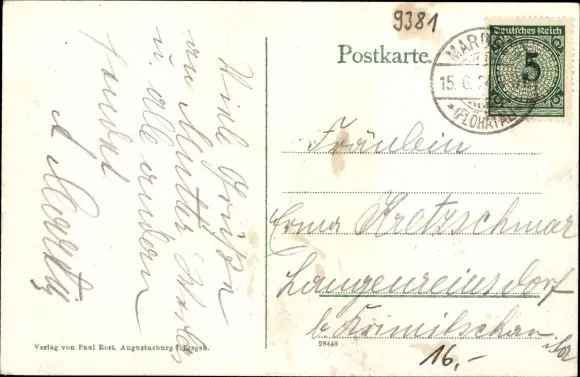 9381
Postkarte.
Deutsches Reich
5
15.6.2
(FLÖHATAL)
Viele Grüße
von Mutter
u. alle andern
sendet
A Moritz
Fräulein
Erna Kretzschmar
Langenreinsdorf
b. Krimitschau
i. Sa
Verlag von Paul Rost, Augustusburg i. Erzgeb.
28448
16,-